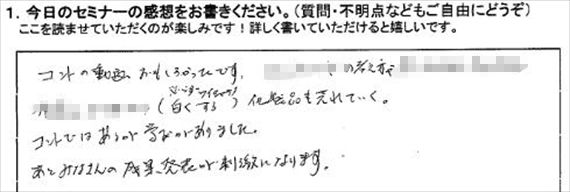 1. 今日のセミナーの感想をお書きください。(質問・不明点などもご自由にどうぞ)
ここを読ませていただくのが楽しみです！詳しく書いていただけると嬉しいです。
コントの動画おもしろかったです。 の考え方
(白くする) 化粧品も売れていく。
コントではあるが学びがありました。
あとみなさんの成果発表が刺激になります。